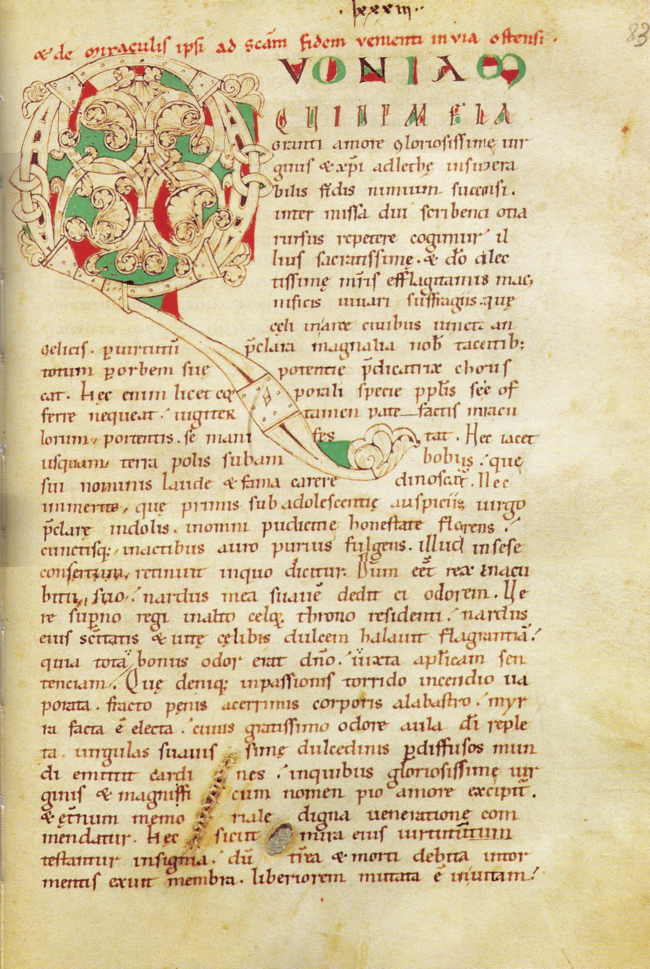 lxxxiii
83
& de miraculis ipsi ad scam fidem venienti in via ostensi.
QUONIAM
QUIDEM ERGA
gratiti amore gloriosissimę uir
ginis & xp̄i adlechę insupera
bilis fidis nimium succensi.
inter missa dui scribendi otia
rursus repetere cogimur il
lius sacratissimę. & dō dilec
tissimę mris efflagitamus mag
nificis iuuari suffragiis. quę
cęli in arce ciuibus iuncta an
gelicis. p uirtutū pclara magnalia nob tacentib;
totum p orbem suę potentię pdicatrix chorus
cat. Hec enim licet eq porali specie pplis sęę of
ferre nequeat. iugiter tamen pate factis miracu
lorum portentis. se mani fes tat. Hec iacet
usquam terra polis subam bobus. quę
sui nominis laude & fama carere dinoscat. Nec
inmerito, quę primis sub adolescentię auspiciis uirgo
pclarę indolis. inomni pudicitię honestate florens.
cunctisq; inactibus auro purius fulgens. illud insese
consertum retinuit inquo dicitur. Dum eēt rex in accu
bitu suo. nardus mea suauē dedit ei odorem. Ue
re supno regi inalto celsq; throno residenti. nardus
eius scītatis & uitę cęlibis dulcem halauit flagrantiā.
quia tota bonus odor erat dño. iuxta aplicam sen
tenciam. Quę deniq; inpassionis torrido incendio ua
porata. fracto pęnis acerrimis corporis alabastro. myr
ra facta ē electa. cuius gratissimo odore aula dī reple
ta. uirgulas suauis simę dulcedinis pdiffusos mun
di emittit cardi nes. inquibus gloriosissimę uir
ginis & magnifi cum nomen pio amore excipit.
& ętnum memo riale digna ueneratione com
mendatur. Hec sicut mira eius uirtutum
testantur insignia. dū trea & morti debita intor
mentis exuit membra. liberiorem mutata ē inuitam.